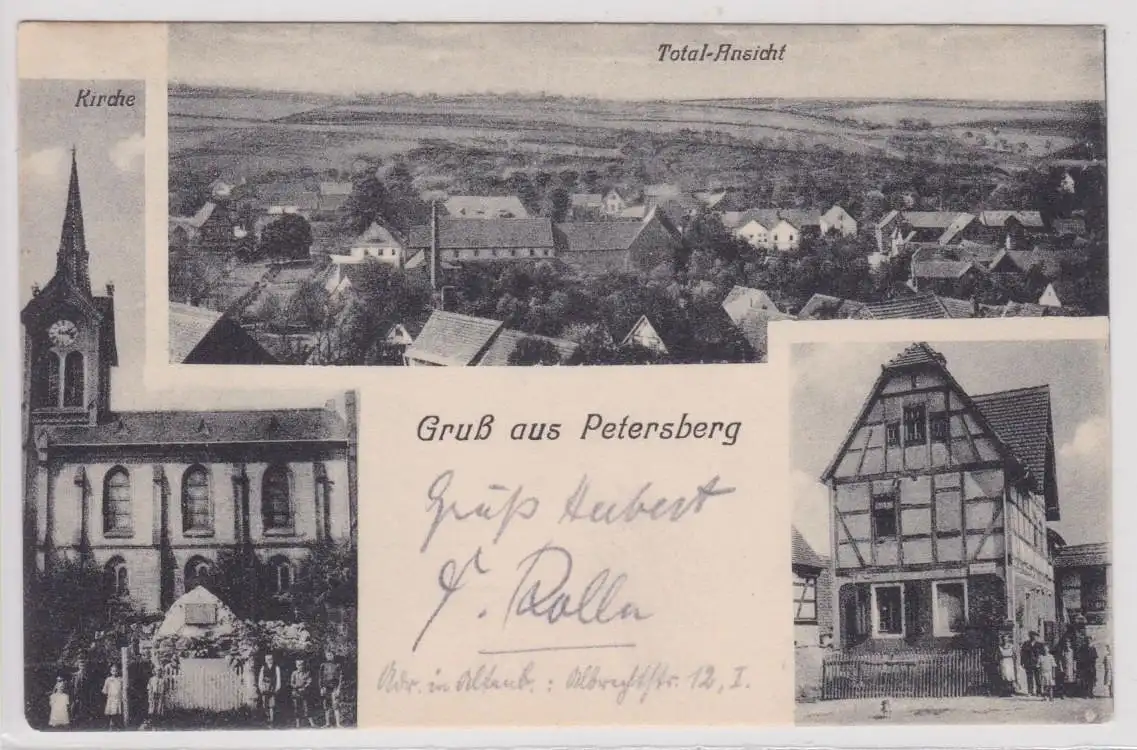 Total-Ansicht
Kirche
Gruß aus Petersberg
Gruß Hubert
Rolle
Adr. in Altenb.: Albrechtstr. 12, I.